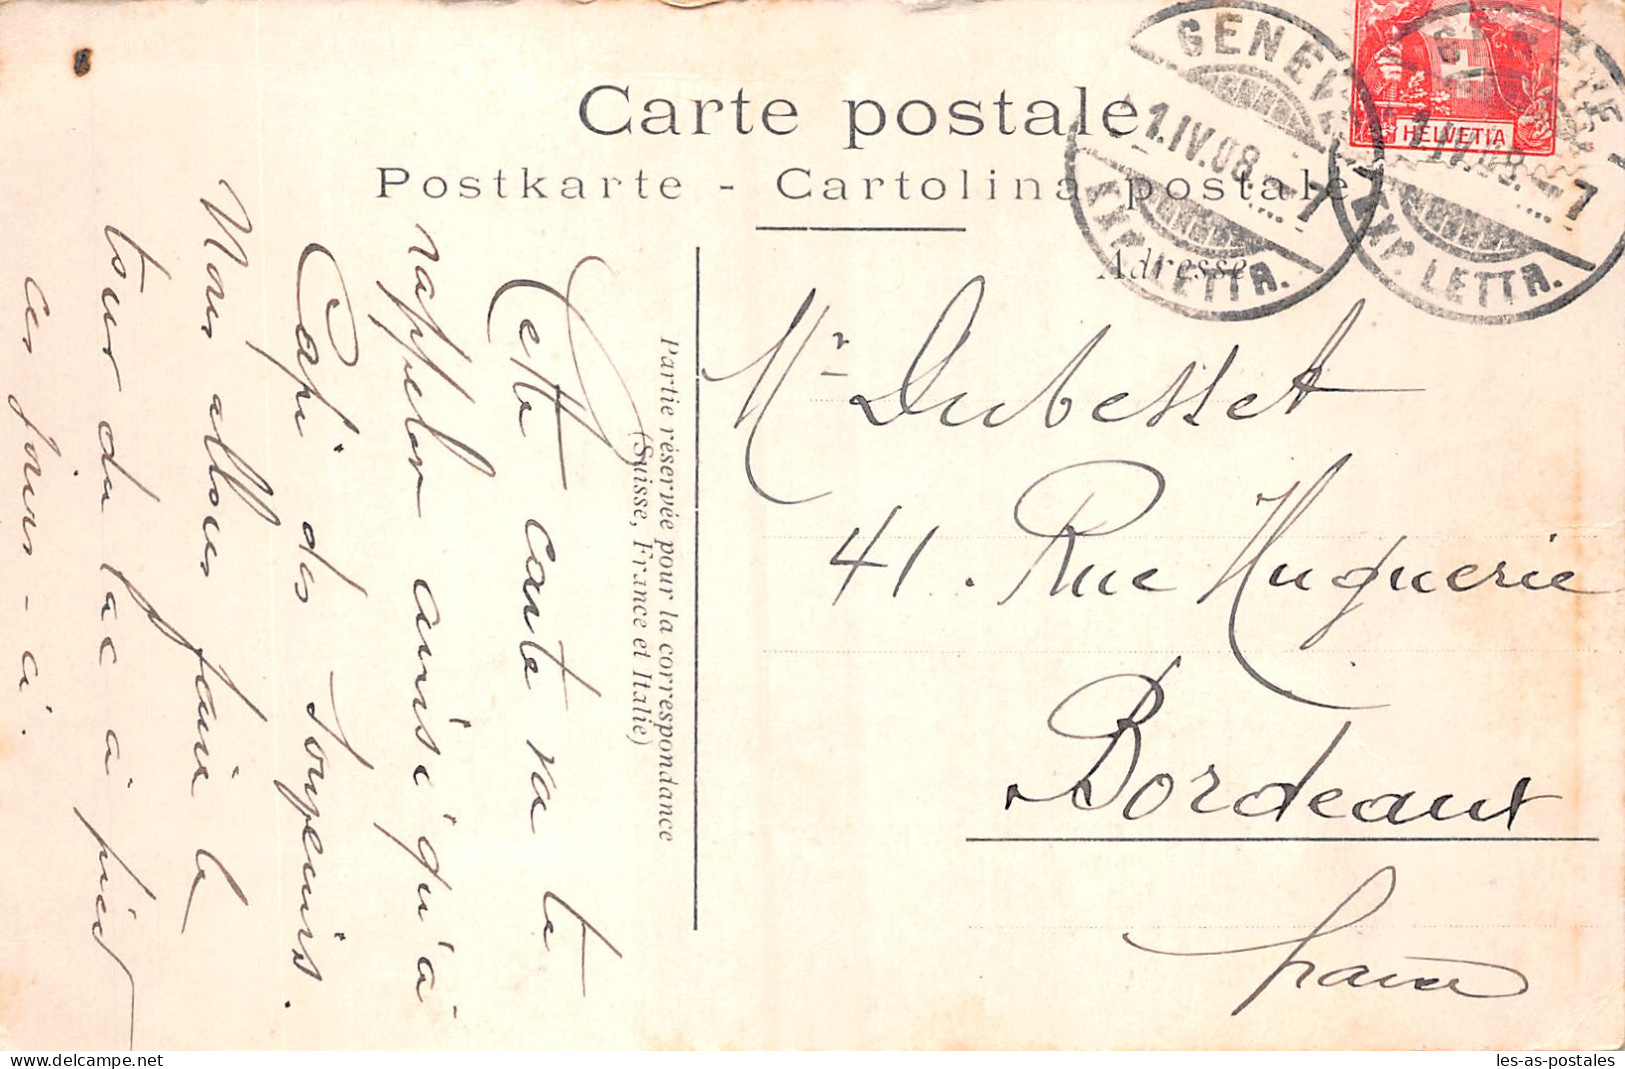 Carte postale
Postkarte - Cartolina postale
Adresse
GENEVE
1.IV.08. 7
EXP. LETTR.
GENEVE
1.IV.08. 7
EXP. LETTR.
HELVETIA
Mr Dubesset
41. Rue Huguerie
Bordeaux
France
Partie réservée pour la correspondance
(Suisse, France et Italie)
Cette carte va te
rappeler ainsi qu'à
Capi des souvenirs.
Nous allons faire le
tour du lac à pied
ces jours-ci.
delcampe.net
les-as-postales